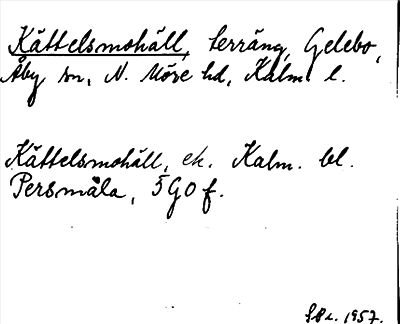 Kättelsmohäll, terräng, Gelebo,
Åby sn, N. Möre hd, Kalm. l.
Kättelsmohäll, ek. Kalm. bl.
Persmåla, 5 G 0 f.
1957.